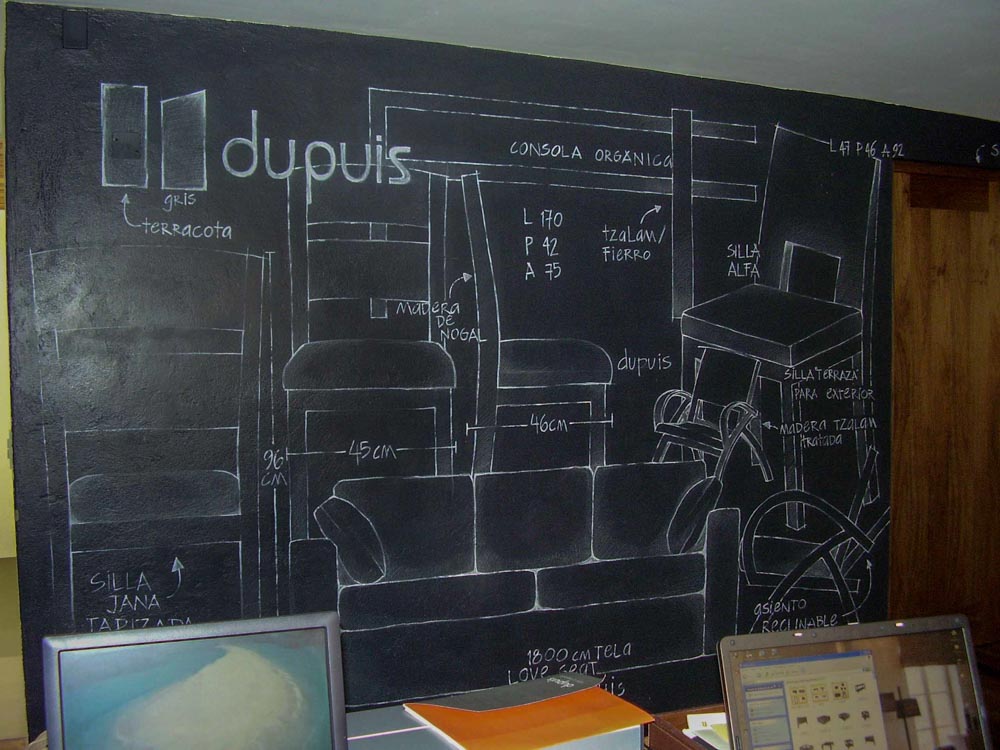 dupuis
gris
terracota
CONSOLA ORGÁNICA
L 170
P 42
A 75
tzaLam/
FIERRO
L47 P46 A92
SILLA
ALFA
MADERA
DE
NOGAL
dupuis
SILLA TERRAZA
PARA EXTERIOR
MADERA TZALAM
tratada
96
CM
45CM
46CM
SILLA
JANA
TAPIZADA
asiento
RECLINABLE
1800 CM TELA
LOVE SEAT
dupuis